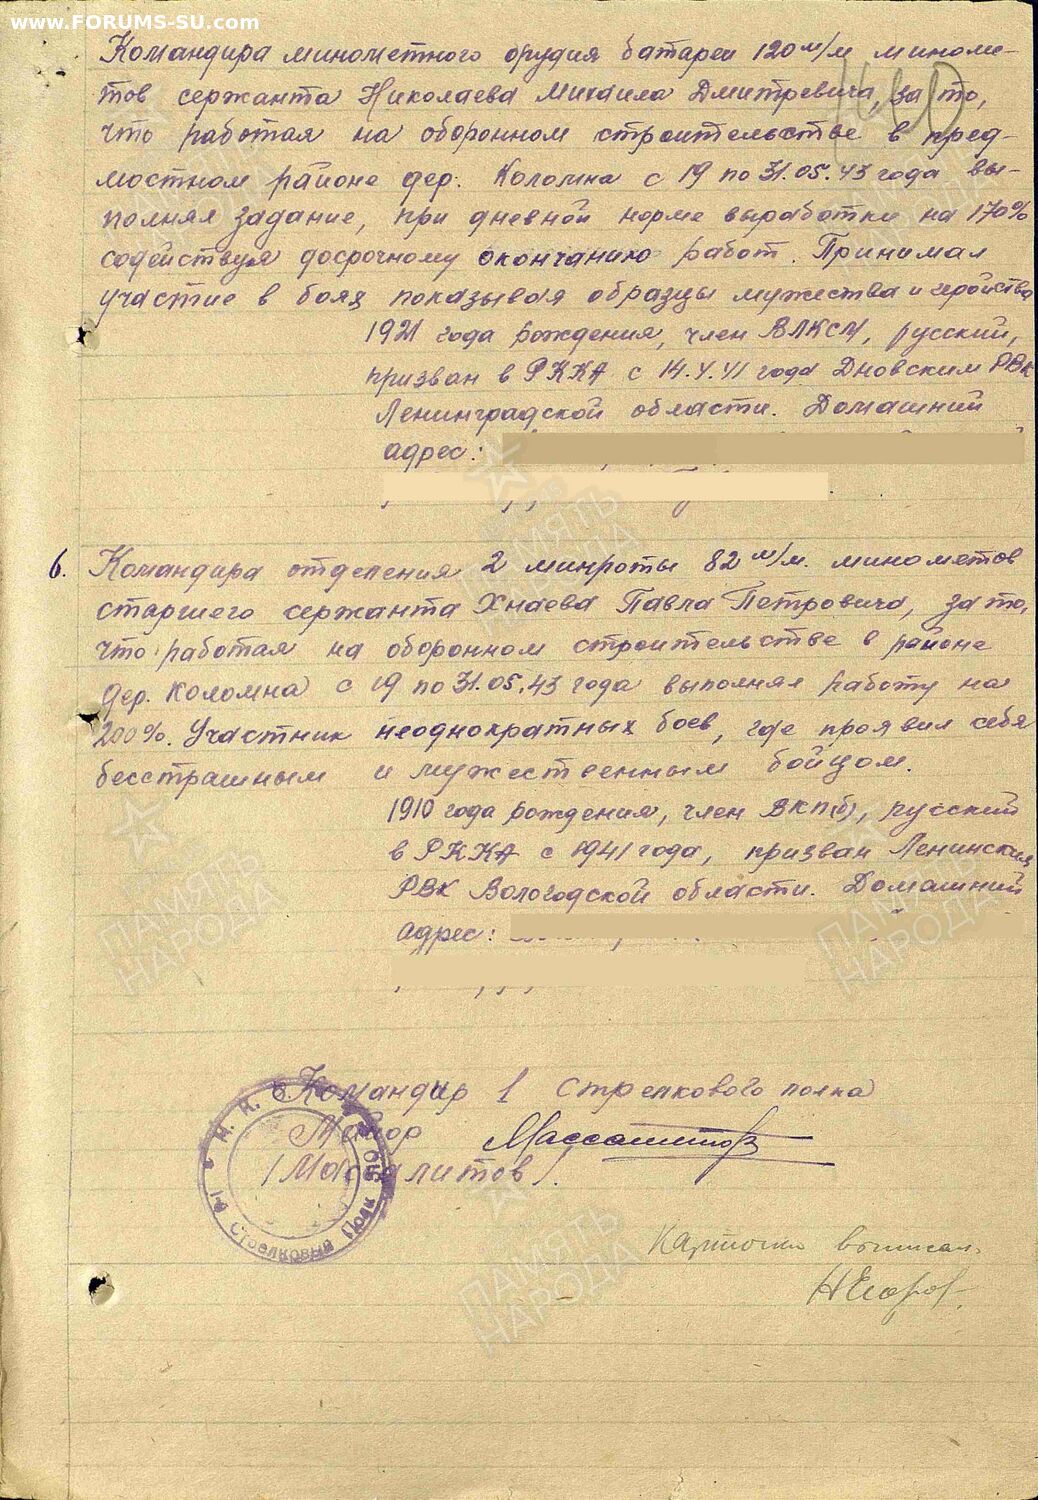 www.FORUMS-SU.com
Командира минометного орудия батареи 120 м/м миноме-
тов сержанта Николаева Михаила Дмитревича, за то,
что работая на оборонном строительстве в пред-
мостном районе дер. Коломна с 19 по 31.05.43 года вы-
полнял задание, при дневной норме выработки на 170%
содействуя досрочному окончанию работ. Принимал
участие в боях показывая образцы мужества и геройства
1921 года рождения, член ВЛКСМ, русский,
призван в РККА с 14.V.41 года Дновским РВК
Ленинградской области. Домашний
адрес:
6. Командира отделения 2 минроты 82 м/м. минометов
старшего сержанта Хнаева Павла Петровича, за то,
что работая на оборонном строительстве в районе
дер. Коломна с 19 по 31.05.43 года выполнял работу на
200%. Участник неоднократных боев, где проявил себя
бесстрашным и мужественным бойцом.
1910 года рождения, член ВКП(б), русский
в РККА с 1941 года, призван Ленинским
РВК Вологодской области. Домашний
адрес:
Командир 1 Стрелкового полка
Майор
/Массалитов/.
1-й Стрелковый Полк
Карточки выписал.
ПАМЯТЬ НАРОДА
ПАМЯТЬ НАРОДА
ПАМЯТЬ НАРОДА
ПАМЯТЬ НАРОДА